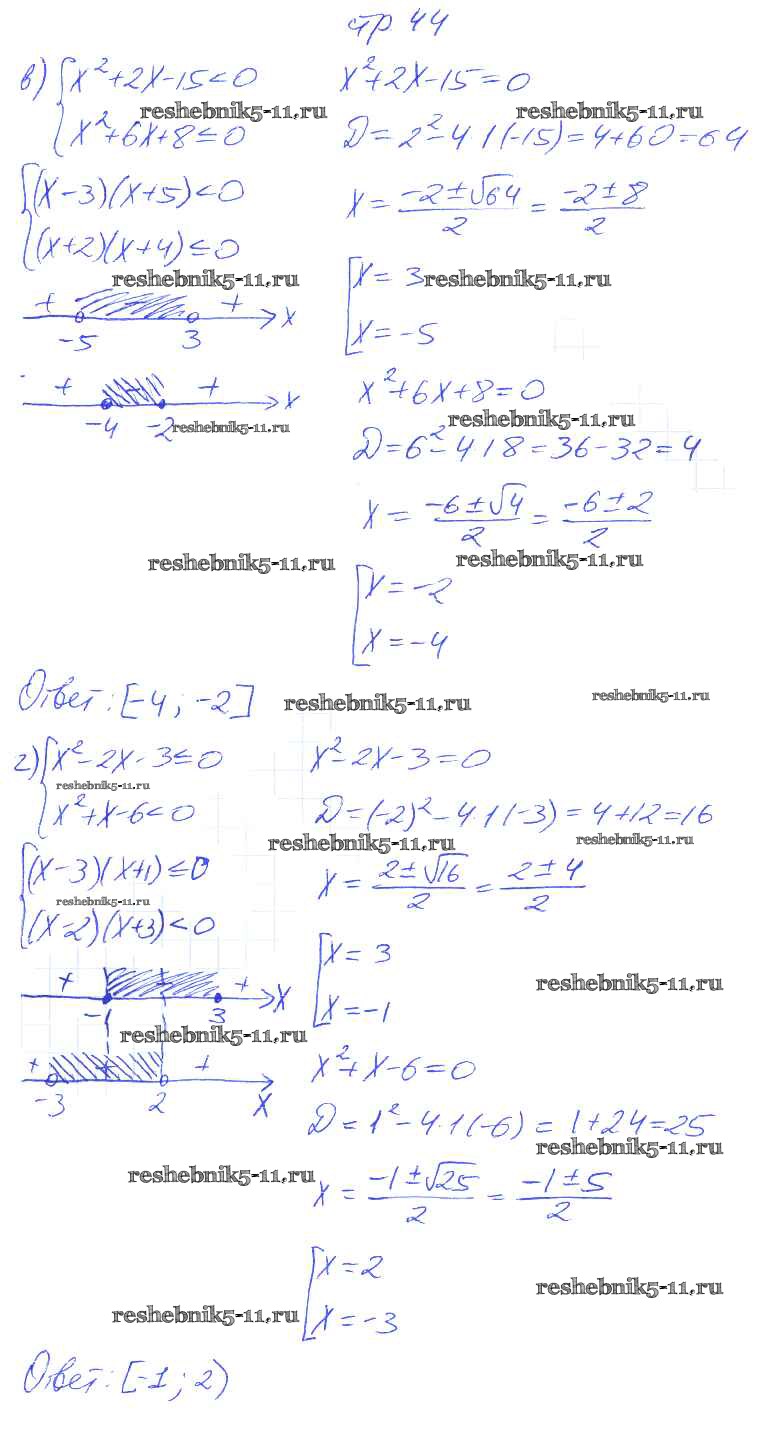 стр 44
в) { x² + 2x - 15 < 0
x² + 6x + 8 ≤ 0
x² + 2x - 15 = 0
reshebnik5-11.ru reshebnik5-11.ru
D = 2² - 4·1(-15) = 4 + 60 = 64
{ (x - 3)(x + 5) < 0
(x + 2)(x + 4) ≤ 0
x = (-2 ± √64)/2 = (-2 ± 8)/2
reshebnik5-11.ru reshebnik5-11.ru
[ x = 3
x = -5
+ - + x
-5 3
+ - + x
-4 -2
reshebnik5-11.ru
x² + 6x + 8 = 0
reshebnik5-11.ru
D = 6² - 4·1·8 = 36 - 32 = 4
x = (-6 ± √4)/2 = (-6 ± 2)/2
reshebnik5-11.ru reshebnik5-11.ru
[ x = -2
x = -4
Ответ: [-4; -2]
reshebnik5-11.ru reshebnik5-11.ru
г) { x² - 2x - 3 ≤ 0
reshebnik5-11.ru
x² + x - 6 < 0
x² - 2x - 3 = 0
D = (-2)² - 4·1(-3) = 4 + 12 = 16
reshebnik5-11.ru reshebnik5-11.ru
{ (x - 3)(x + 1) ≤ 0
reshebnik5-11.ru
(x - 2)(x + 3) < 0
x = (2 ± √16)/2 = (2 ± 4)/2
[ x = 3
x = -1
reshebnik5-11.ru
+ - + x
-1 3
reshebnik5-11.ru
+ - + x
-3 2
x² + x - 6 = 0
D = 1² - 4·1(-6) = 1 + 24 = 25
reshebnik5-11.ru
reshebnik5-11.ru
x = (-1 ± √25)/2 = (-1 ± 5)/2
[ x = 2
x = -3
reshebnik5-11.ru
reshebnik5-11.ru
Ответ: [-1; 2)